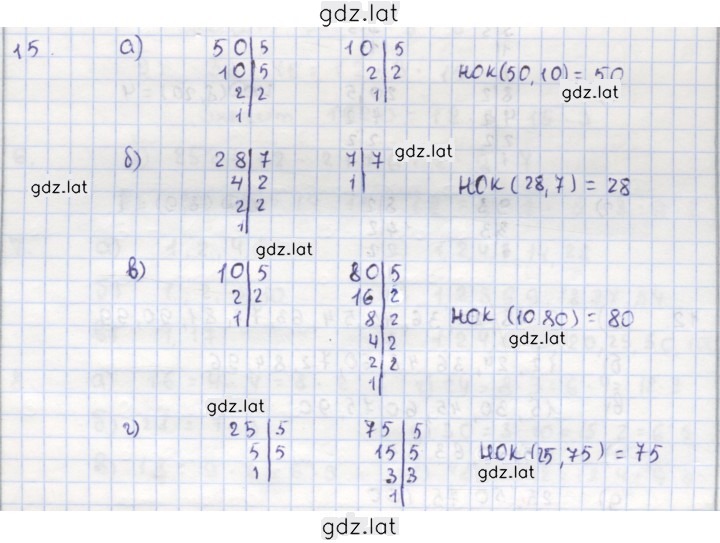 gdz.lat
15. а) 50|5 10|5
10|5 2|2 НОК(50,10) = 50
2|2 1| gdz.lat
1|
б) 28|7 7|7 gdz.lat
gdz.lat 4|2 1| НОК(28,7) = 28
2|2
1|
gdz.lat
в) 10|5 80|5
2|2 16|2
1| 8|2 НОК(10,80) = 80
4|2 gdz.lat
2|2
1|
gdz.lat
г) 25|5 75|5
5|5 15|5 НОК(25,75) = 75
1| 3|3 gdz.lat
1|
gdz.lat